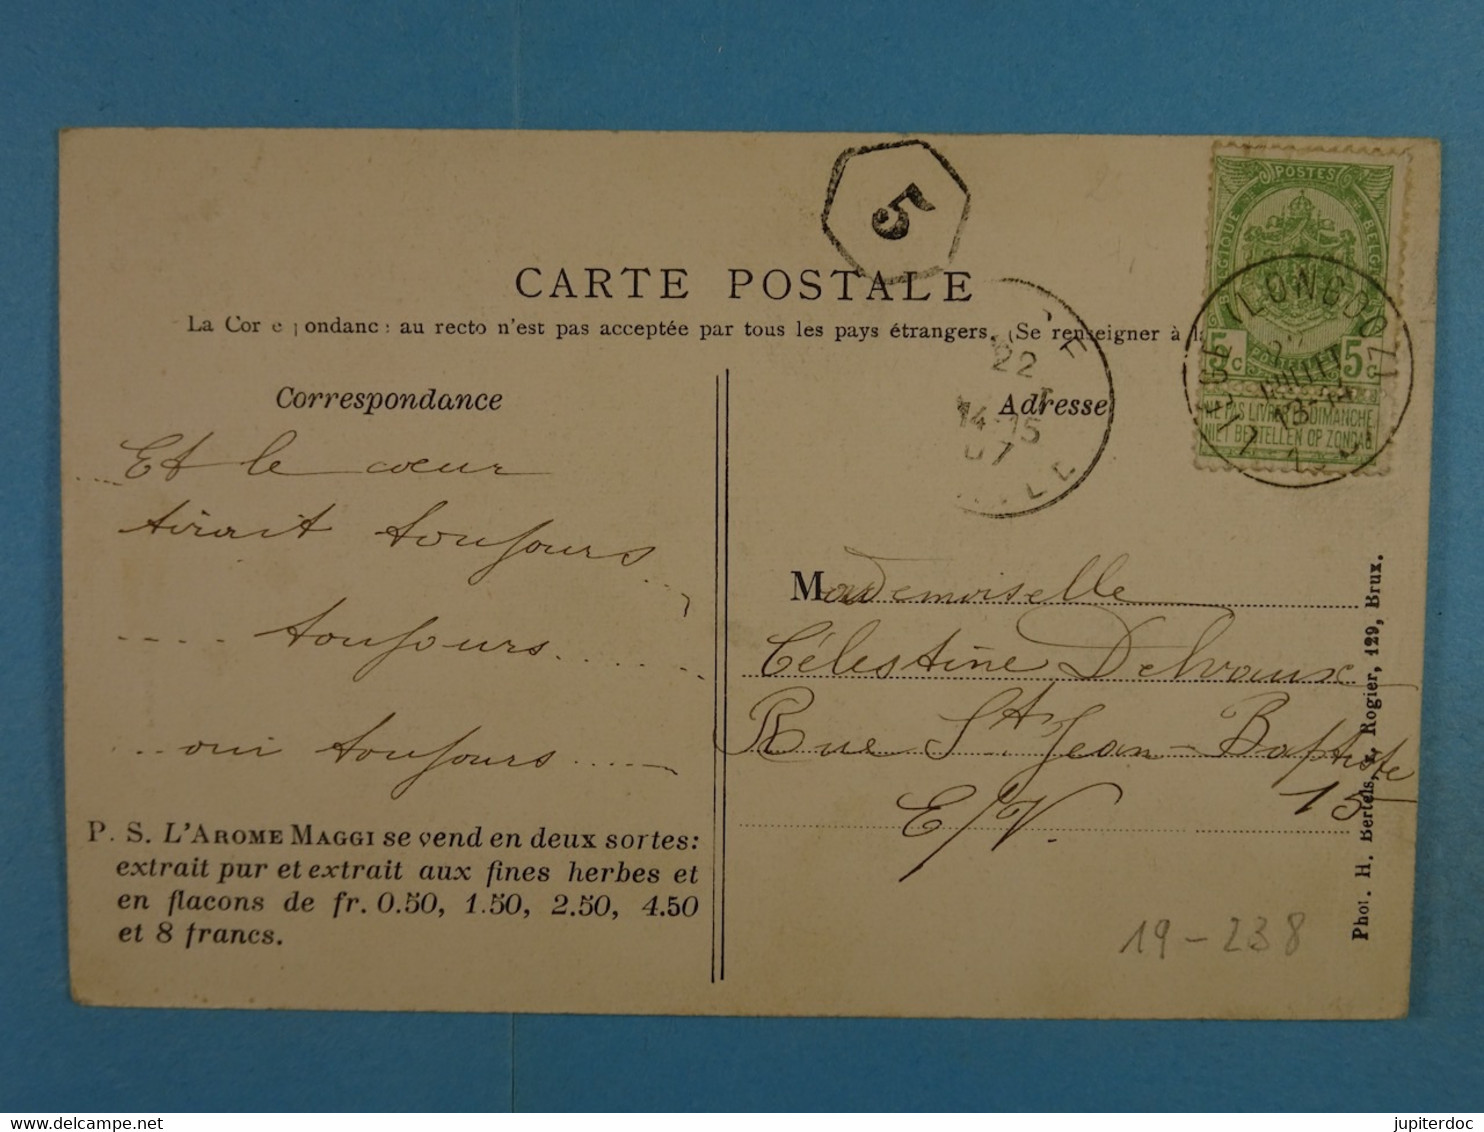 5
CARTE POSTALE
La Cor e pondanc: au recto n'est pas acceptée par tous les pays étrangers. (Se renseigner à la
POSTES
BELGIQUE BELGIË
5c 5c
POSTERIJEN
NE PAS LIVRER LE DIMANCHE
NIET BESTELLEN OP ZONDAG
(LONGDOZ)
22
14-15
07
Correspondance
... Et le cœur
tirait toujours ...
.... toujours ......
... oui toujours .....
P. S. L'AROME MAGGI se vend en deux sortes:
extrait pur et extrait aux fines herbes et
en flacons de fr. 0.50, 1.50, 2.50, 4.50
et 8 francs.
Adresse
Mademoiselle
Célestine Delvaux
Rue St Jean-Baptiste
15
E/V.
19-238
Phot. H. Bertels, r. Rogier, 129, Brux.
jupiterdoc